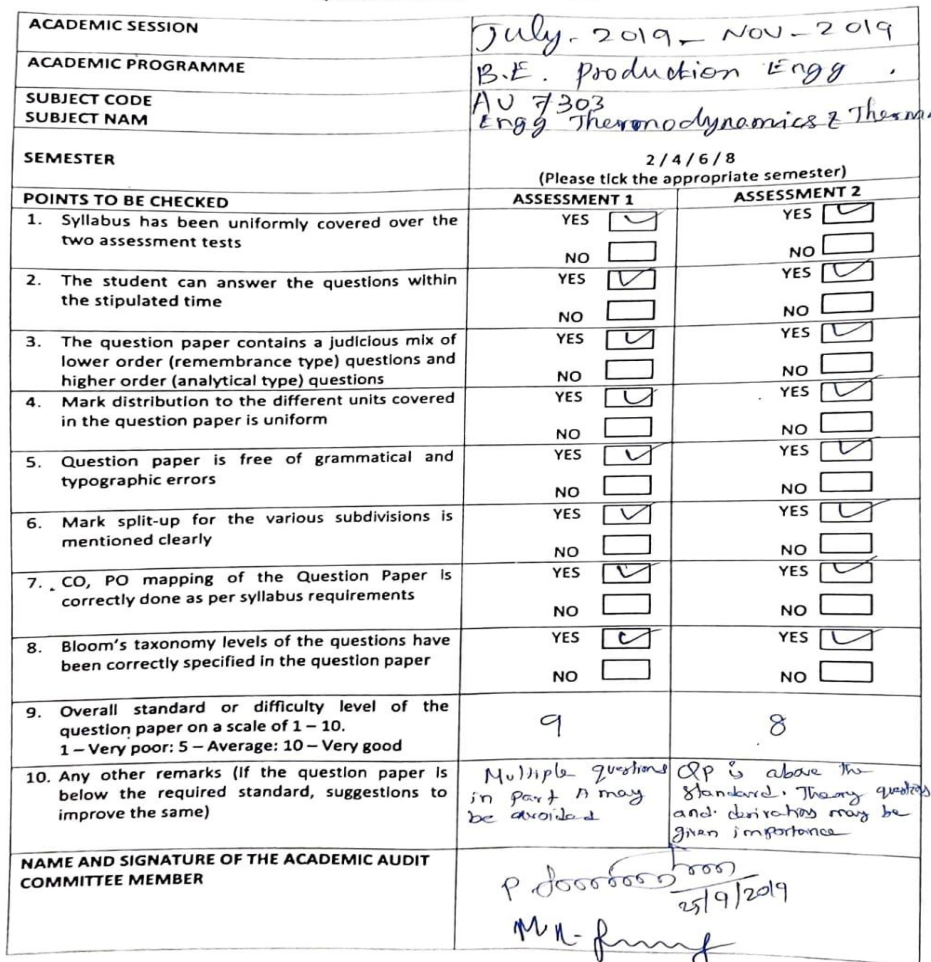 ACADEMIC SESSION
July - 2019 - NOV - 2019
ACADEMIC PROGRAMME
B.E. Production Engg.
SUBJECT CODE
AU 7303
SUBJECT NAM
Engg Thermodynamics & Therm
SEMESTER
2 / 4 / 6 / 8
(Please tick the appropriate semester)
POINTS TO BE CHECKED
ASSESSMENT 1
ASSESSMENT 2
1. Syllabus has been uniformly covered over the
two assessment tests
YES
NO
YES
NO
2. The student can answer the questions within
the stipulated time
YES
NO
YES
NO
3. The question paper contains a judicious mix of
lower order (remembrance type) questions and
higher order (analytical type) questions
YES
NO
YES
NO
4. Mark distribution to the different units covered
in the question paper is uniform
YES
NO
YES
NO
5. Question paper is free of grammatical and
typographic errors
YES
NO
YES
NO
6. Mark split-up for the various subdivisions is
mentioned clearly
YES
NO
YES
NO
7. CO, PO mapping of the Question Paper is
correctly done as per syllabus requirements
YES
NO
YES
NO
8. Bloom's taxonomy levels of the questions have
been correctly specified in the question paper
YES
NO
YES
NO
9. Overall standard or difficulty level of the
question paper on a scale of 1 – 10.
1 – Very poor: 5 – Average: 10 – Very good
9
8
10. Any other remarks (If the question paper is
below the required standard, suggestions to
improve the same)
Multiple questions
in Part A may
be avoided
QP is above the
standard. Theory questions
and derivations may be
given importance
NAME AND SIGNATURE OF THE ACADEMIC AUDIT
COMMITTEE MEMBER
25/9/2019